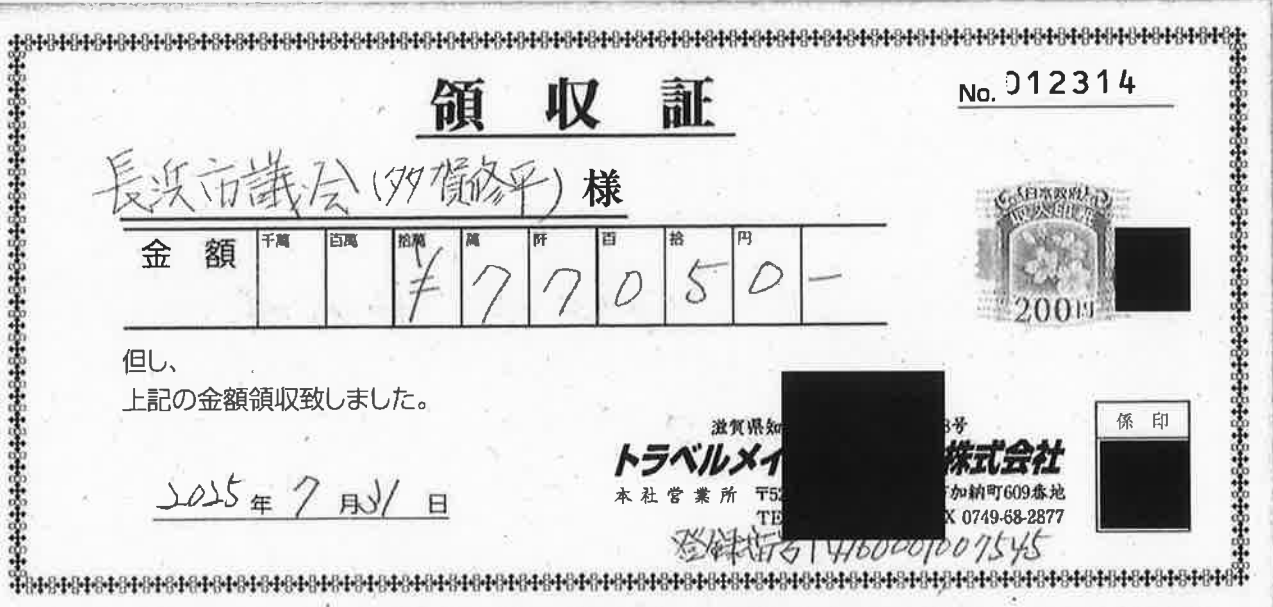 領収証
No. 012314
長浜市議会(多賀修平)様
金額 千萬 百萬 拾萬 萬 阡 百 拾 円
¥77050-
日本政府
収入印紙
200円
但し、
上記の金額領収致しました。
2025年7月31日
滋賀県知 号
トラベルメイ 株式会社
本社営業所 〒52 加納町609番地
TE X 0749-68-2877
登録番号 T4160001007545
係印